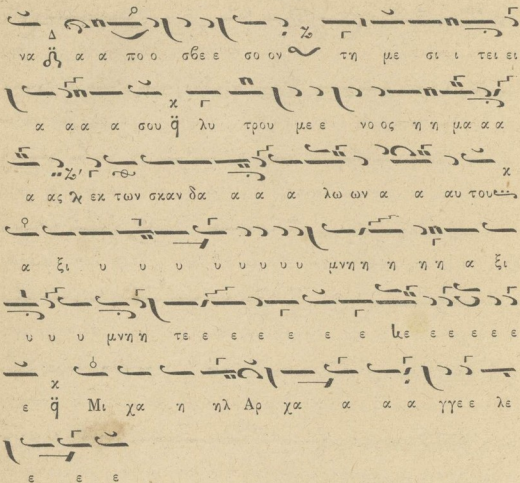 να α α πο ο σβε ε σο ον τη με σι ι τει ει
α α α α σου λυ τρου με ε νο ος η η μα α α
α ας εκ των σκαν δα α α α λω ων α α αυ του
α ξι υ υ υ υ υ υ υ υ μνη η η η η η α ξι
υ υ υ μνη η τε ε ε ε ε ε ε κε ε ε ε ε ε
ε Μι χα η ηλ Αρ χα α α α γγε ε λε
ε ε ε